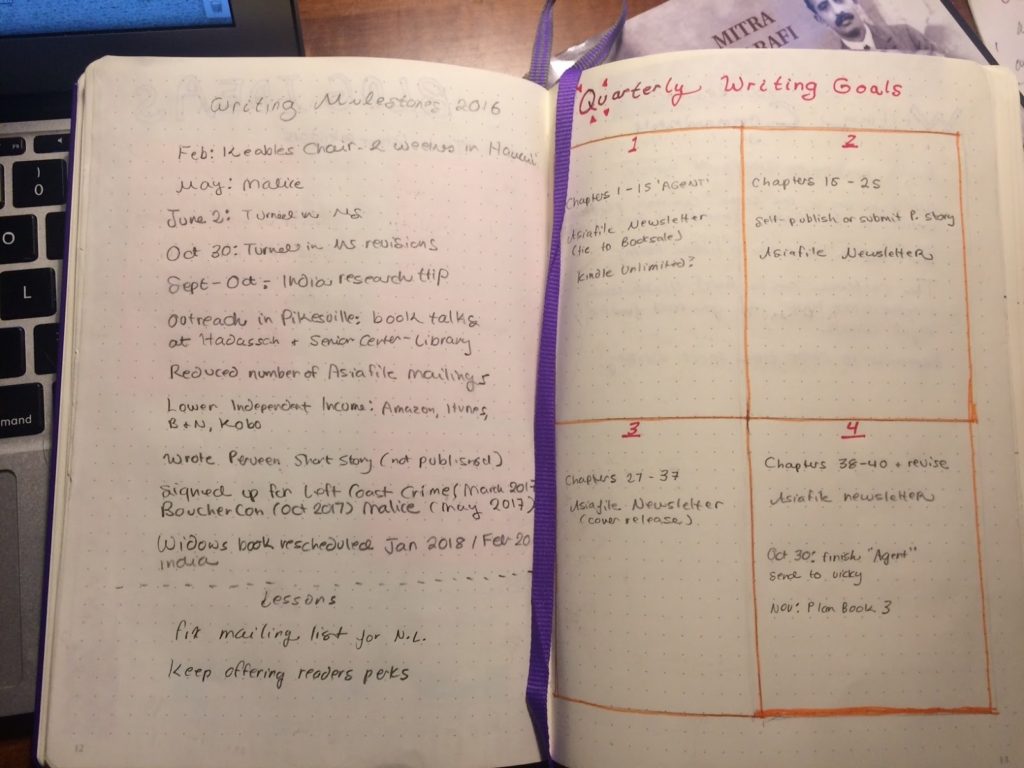 Writing Milestones 2016
Feb: Keables Chair - 2 weeks in Hawaii
May: Malice
June 2: Turned in MS
Oct 30: Turned in MS revisions
Sept-Oct: India research trip
Outreach in Pikesville: book talks
at Hadassah + Senior Center-Library
Reduced number of Asiafile mailings
Lower Independent Income: Amazon, Itunes,
B+N, Kobo
Wrote Perveen Short Story (not published)
Signed up for Left Coast Crime (March 2017
BoucherCon (Oct 2017) Malice (May 2017)
Widows book rescheduled Jan 2018 / Feb 20
india
Lessons
fix mailing list for N.L.
Keep offering readers perks
12
MITRA
RAFI
Quarterly Writing Goals
1
Chapters 1-15 'AGENT'
Asiafile Newsletter
(tie to Booksale)
Kindle Unlimited?
2
Chapters 16-25
Self-publish or submit P. story
Asiafile Newsletter
3
Chapters 27-37
Asiafile Newsletter
(cover release)
4
Chapters 38-40 + revise
Asiafile newsletter
Oct 30: finish "Agent"
send to vicky
Nov: Plan Book 3
13
)
0
O
L
mand